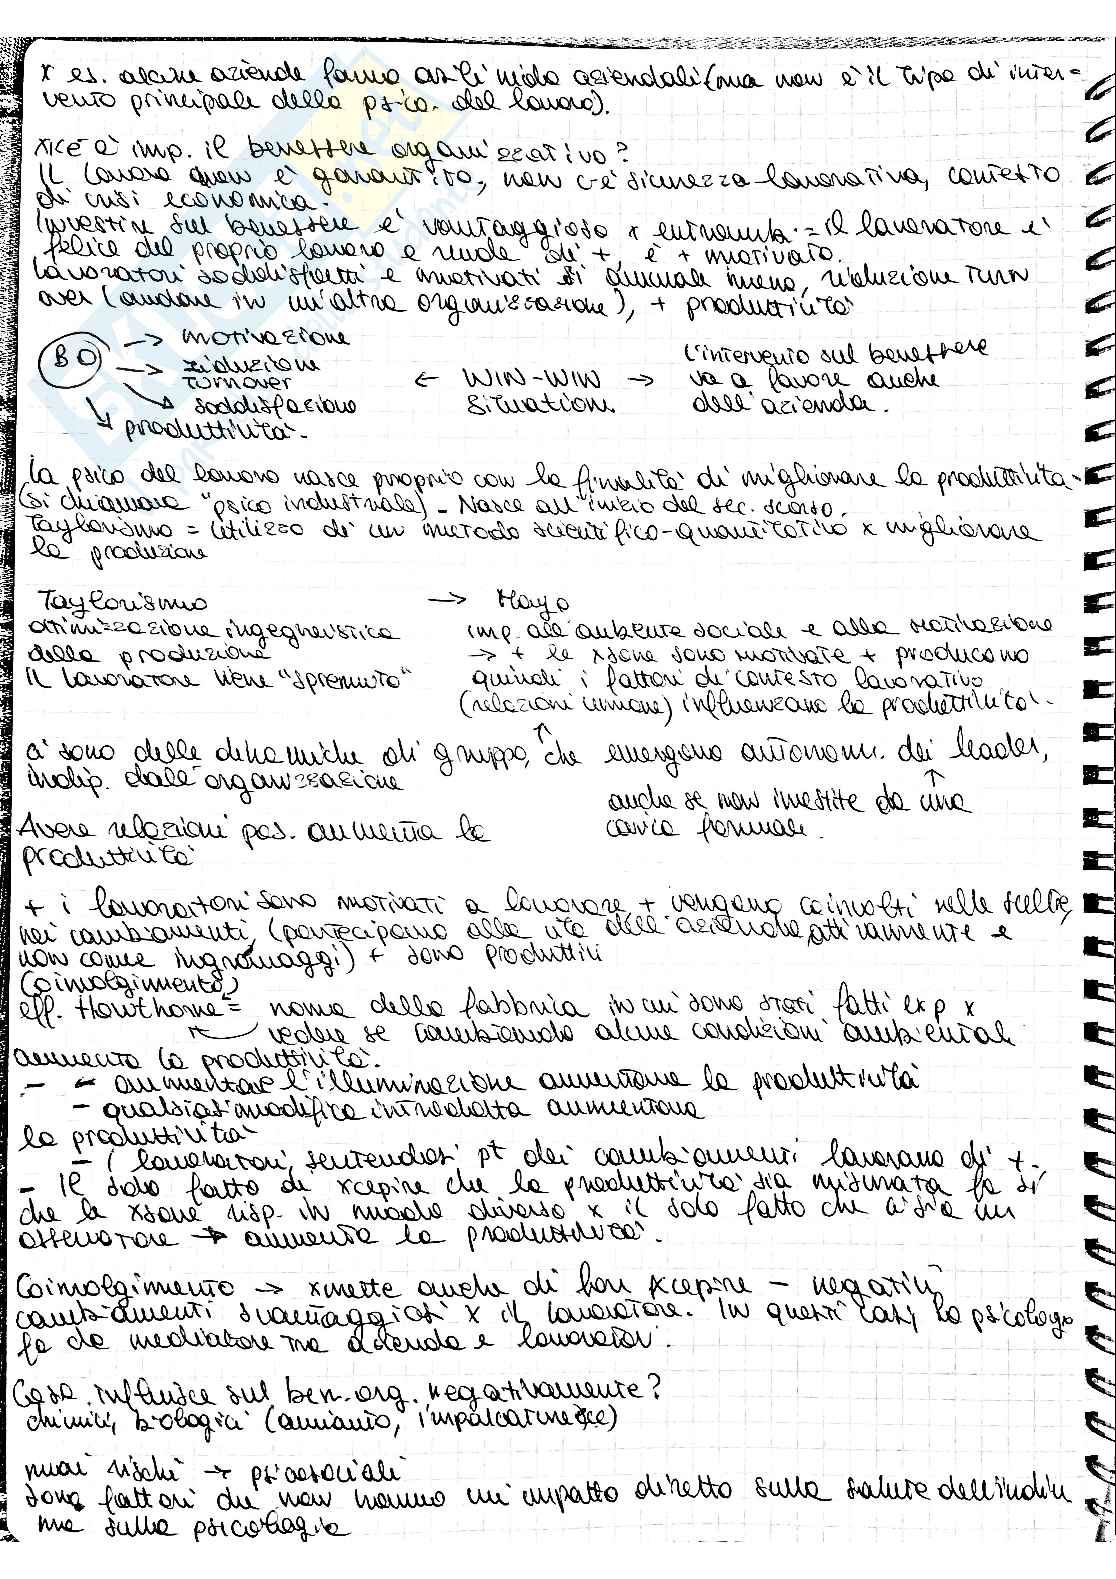 x es. alcune aziende fanno asili nido aziendali (ma non è il tipo di inter-
vento principale della psico. del lavoro).
xké è imp. il benessere organizzativo?
Il lavoro non è garantito, non c'è sicurezza lavorativa, contesto
di crisi economica.
Investire sul benessere è vantaggioso x entrambi = il lavoratore è
felice del proprio lavoro e rende di +, è + motivato.
Lavoratori soddisfatti e motivati si ammala meno, riduzione turn
over (andare in un'altra organizzazione), + produttività
BO → motivazione
→ riduzione
turnover
→ soddisfazione
→ produttività.
← WIN-WIN →
situation
l'intervento sul benessere
va a favore anche
dell'azienda.
la psico del lavoro nasce proprio con la finalità di migliorare la produttività.
(si chiamava "psico industriale) - Nasce all'inizio del sec. scorso.
Taylorismo = utilizzo di un metodo scientifico-quantitativo x migliorare
la produzione
Taylorismo
ottimizzazione ingegneristica
della produzione
Il lavoratore viene "spremuto"
→ Mayo
imp. all'ambiente sociale e alla motivazione
→ + le xsone sono motivate + producono
quindi i fattori di contesto lavorativo
(relazioni umane) influenzano la produttività.
ci sono delle dinamiche di gruppo, che emergono autonom. dei leader,
indip. dall'organizzazione
anche se non investite da una
carica formale.
Avere relazioni pos. aumenta la
produttività
+ i lavoratori sono motivati a lavorare + vengono coinvolti nelle scelte,
nei cambiamenti, (partecipano alla vita dell'azienda attivamente e
non come ingranaggi) + sono produttivi
(coinvolgimento)
eff. Hawthorne = nome della fabbrica in cui sono stati fatti exp x
vedere se cambiando alcune condizioni ambientali
aumenta la produttività.
- - aumentare l'illuminazione aumentava la produttività
- qualsiasi modifica introdotta aumentava
la produttività
- i lavoratori, sentendosi pt dei cambiamenti lavorano di +.
- Il solo fatto di xcepire che la produttività sia misurata fa sì
che la xsone risp. in modo diverso x il solo fatto che ci sia un
osservatore → aumenta la produttività.
Coinvolgimento → xmette anche di far xcepire - negativi
cambiamenti svantaggiosi x il lavoratore. In questi casi, lo psicologo
fa da mediatore tra azienda e lavoratori.
Cosa influisce sul ben. org. negativamente?
chimici, biologici (amianto,
nuovi rischi → psicosociali
sono fattori che non hanno un impatto diretto sulla salute dell'indiv
ma sulla psicologia